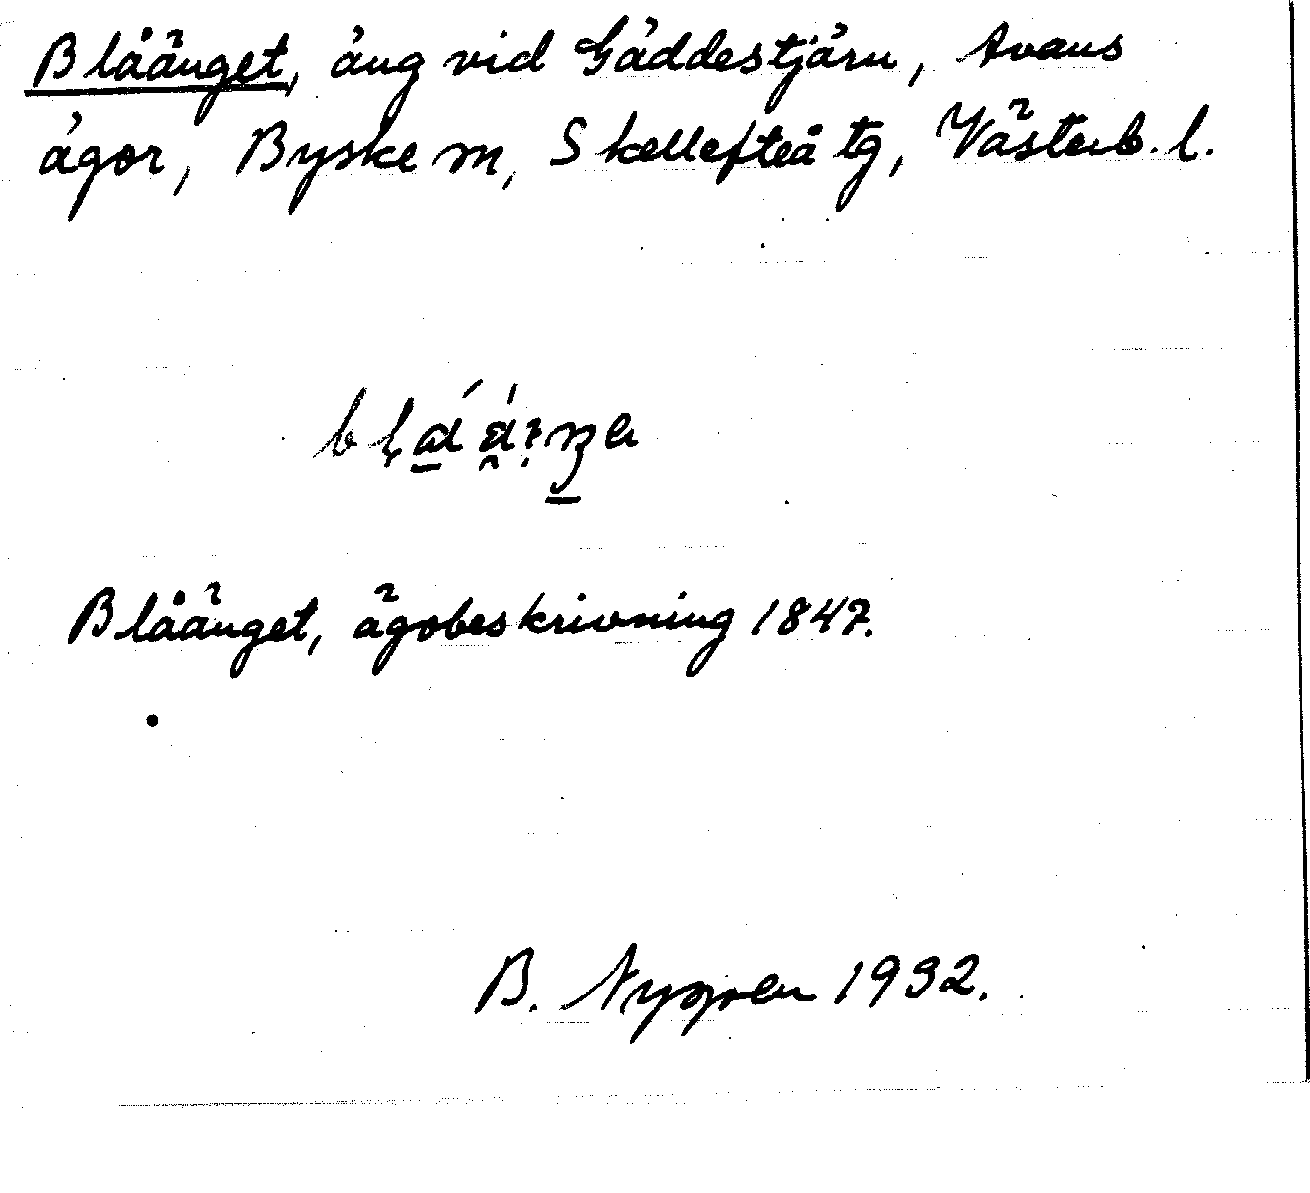 Blåänget, äng vid Gäddestjärn, Avans
ägor, Byske sn, Skellefteå tg, Västerb. l.
Blåänget, ägobeskrivning 1847.
B. Nygren 1932.